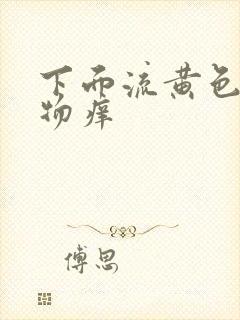 下而流黄色
物痒
傅思